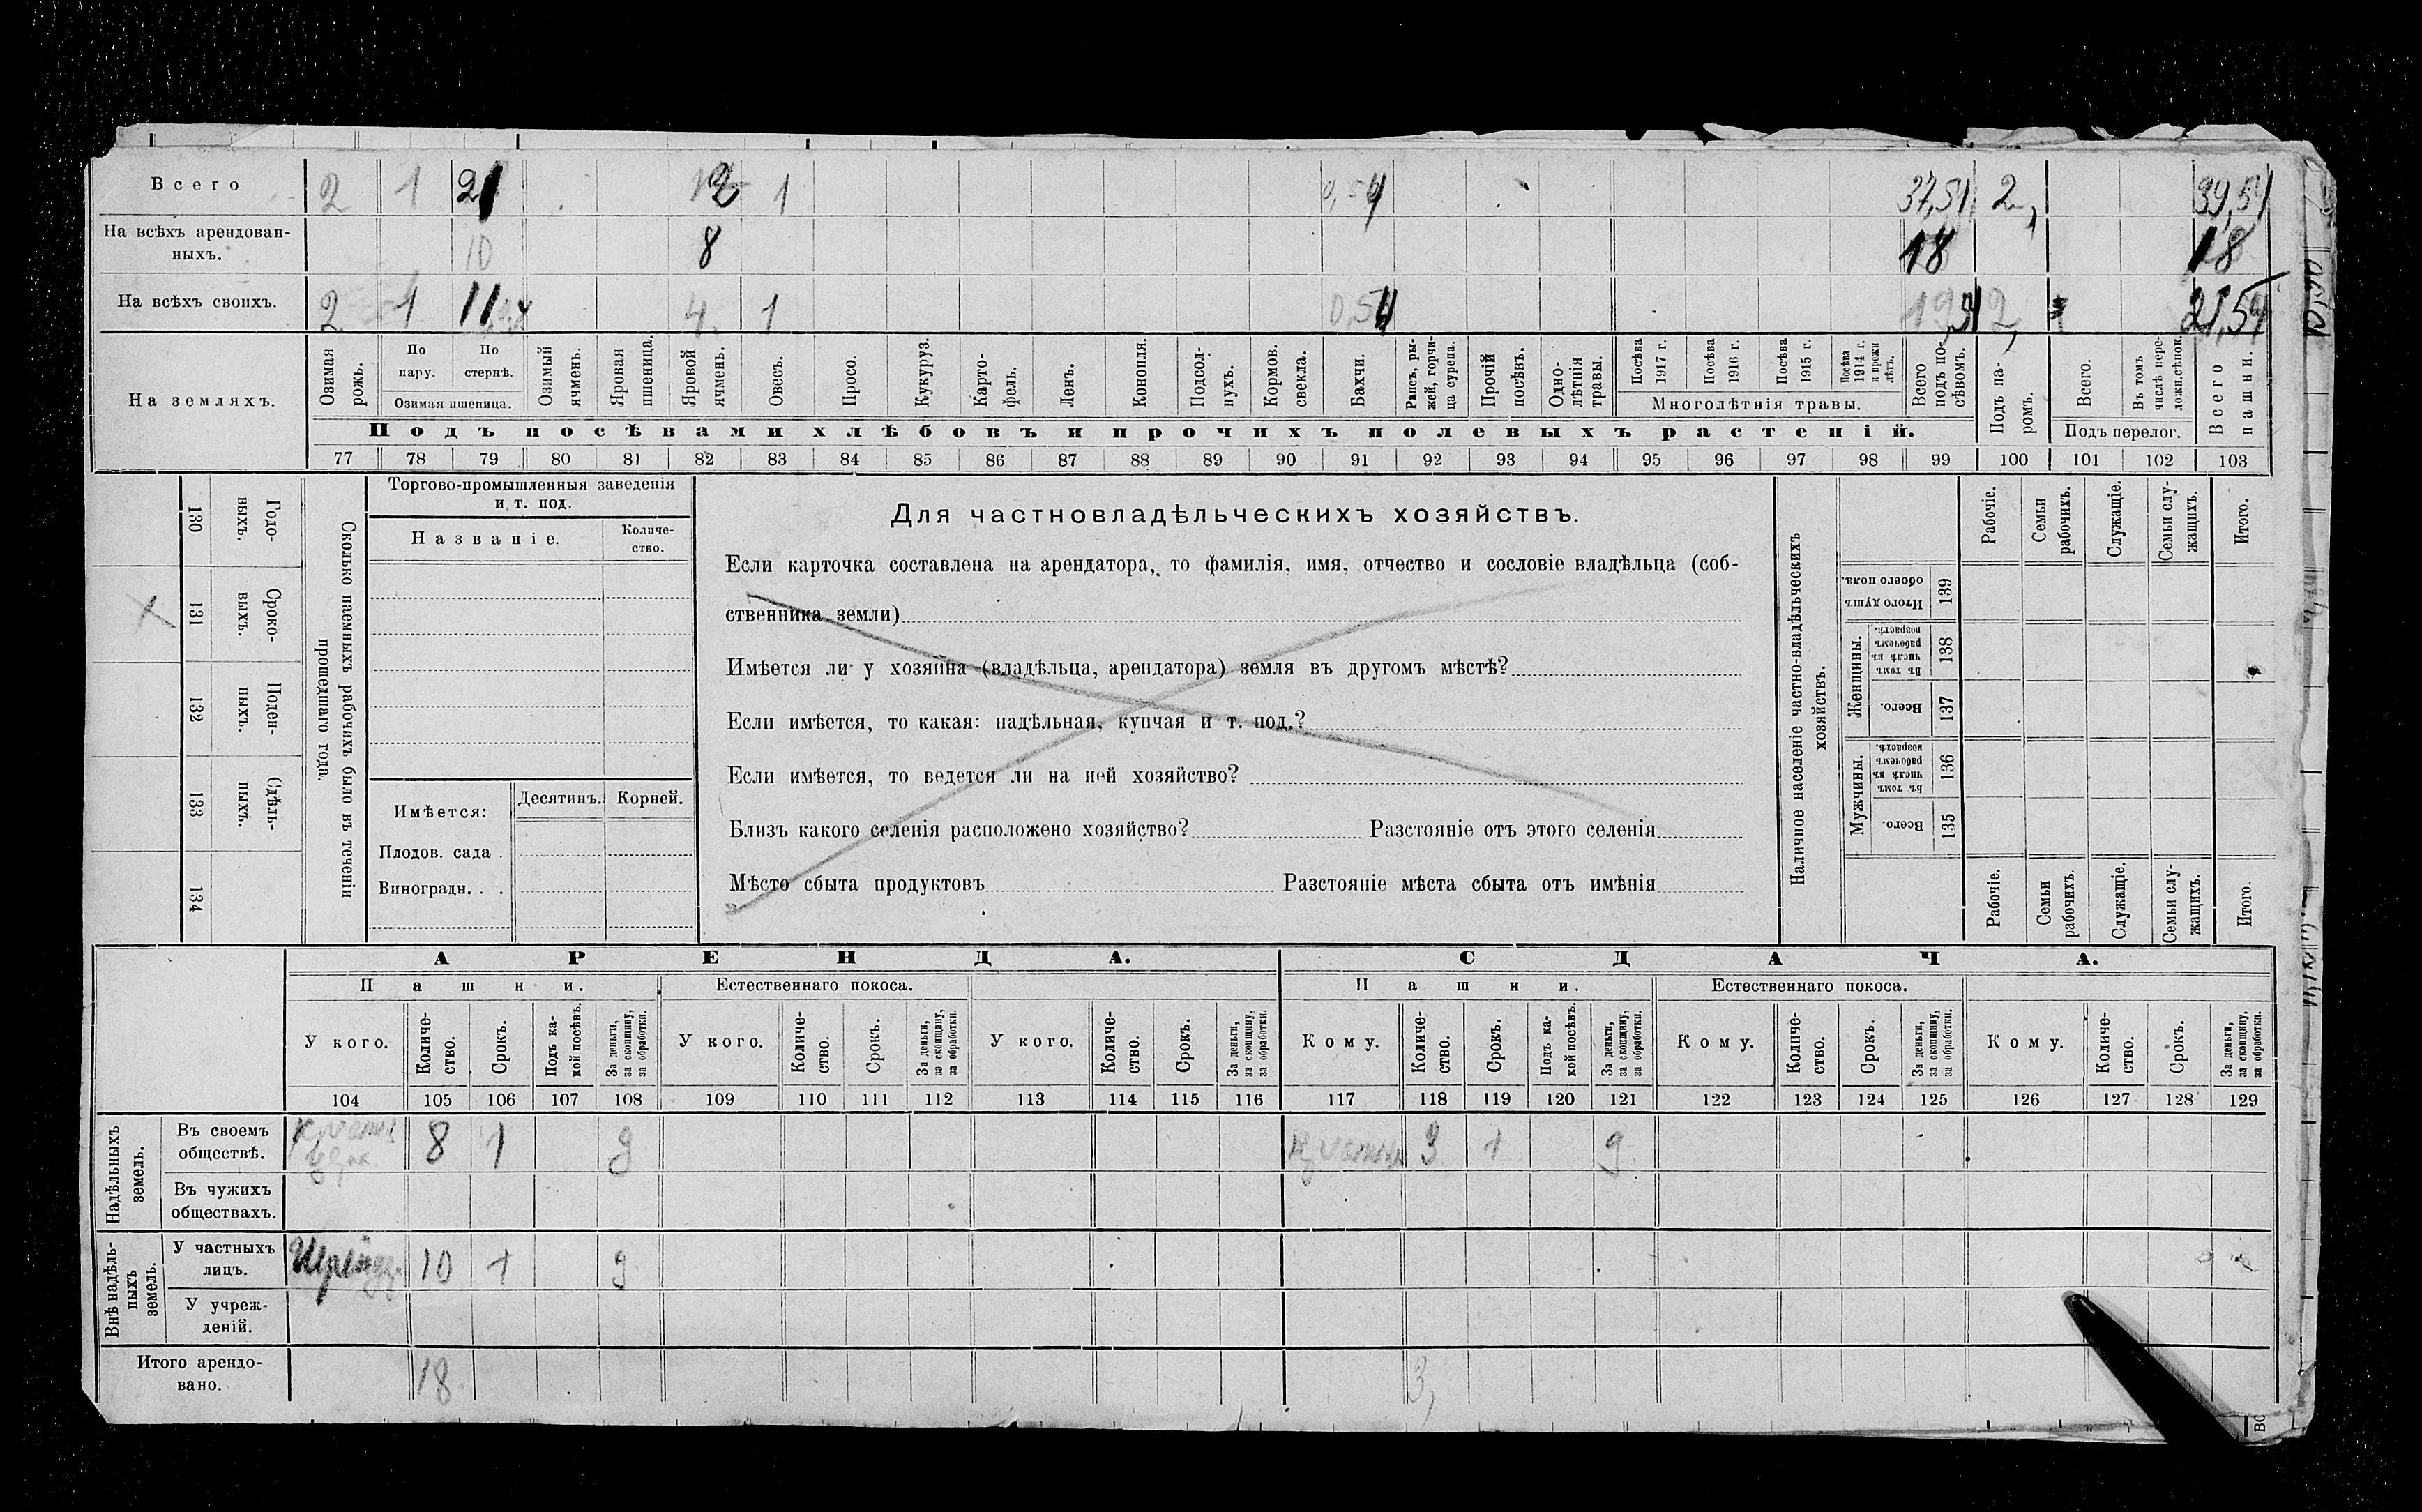 Всего 2 1 21 12 1 0,54 37,54 2, 39,54
На всѣхъ арендован-
ныхъ. 10 8 18 18
На всѣхъ своихъ. 2 1 11 4 1 0,54 19,54 2, 21,54
На земляхъ.
Озимая рожь.
По пару.
По стернѣ.
Озимая пшеница.
Озимый ячмень.
Яровая пшеница.
Яровой ячмень.
Овесъ.
Просо.
Кукуруз.
Карто-
фель.
Ленъ.
Конопля.
Подсол-
нухъ.
Кормов.
свекла.
Бахчи.
Рапсъ, ры-
жей, горчи-
ца сурепа.
Прочій
посѣвъ.
Одно-
лѣтнія
травы.
Посѣва
1917 г.
Посѣва
1916 г.
Посѣва
1915 г.
Посѣва
1914 г.
и прежн
лѣтъ.
Многолѣтнія травы.
Всего
подъ по-
сѣвомъ.
Подъ па-
ромъ.
Всего.
Въ томъ
числѣ пере-
ложн.сѣнок.
Подъ перелог.
Всего
пашни.
Подъ посѣвами хлѣбовъ и прочихъ полевыхъ растеній.
77 78 79 80 81 82 83 84 85 86 87 88 89 90 91 92 93 94 95 96 97 98 99 100 101 102 103
Сколько наемныхъ рабочихъ было въ теченіи
прошедшаго года.
Годо-
выхъ.
130
Сроко-
выхъ.
131
Поден-
ныхъ.
132
Сдѣль-
ныхъ.
133
134
Торгово-промышленныя заведенія
и т. под.
Названіе.
Количе-
ство.
Имѣется: Десятинъ. Корней.
Плодов. сада .
Виноградн. . .
Для частновладѣльческихъ хозяйствъ.
Если карточка составлена на арендатора, то фамилія, имя, отчество и сословіе владѣльца (соб-
ственника земли)
Имѣется ли у хозяина (владѣльца, арендатора) земля въ другомъ мѣстѣ?
Если имѣется, то какая: надѣльная, купчая и т. под.?
Если имѣется, то ведется ли на ней хозяйство?
Близъ какого селенія расположено хозяйство? Разстояніе отъ этого селенія
Мѣсто сбыта продуктовъ Разстояніе мѣста сбыта отъ имѣнія
Наличное населеніе частно-владѣльческихъ
хозяйствъ.
Рабочіе.
Семьи
рабочихъ.
Служащіе.
Семьи слу-
жащихъ.
Итого.
Итого душъ
обоего пола.
139
Женщины.
Въ томъ
числѣ въ
рабочемъ
возрастѣ.
138
Всего.
137
Мужчины.
Въ томъ
числѣ въ
рабочемъ
возрастѣ.
136
Всего.
135
Рабочіе.
Семьи
рабочихъ.
Служащіе.
Семьи слу-
жащихъ.
Итого.
АРЕНДА. СДАЧА.
Пашни. Естественнаго покоса. Пашни. Естественнаго покоса.
У кого.
Количе-
ство.
Срокъ.
Подъ ка-
кой посѣвъ.
За деньги,
за скопщину,
за обработки.
У кого.
Количе-
ство.
Срокъ.
За деньги,
за скопщину,
за обработки.
У кого.
Количе-
ство.
Срокъ.
За деньги,
за скопщину,
за обработки.
Кому.
Количе-
ство.
Срокъ.
Подъ ка-
кой посѣвъ.
За деньги,
за скопщину,
за обработки.
Кому.
Количе-
ство.
Срокъ.
За деньги,
за скопщину,
за обработки.
Кому.
Количе-
ство.
Срокъ.
За деньги,
за скопщину,
за обработки.
104 105 106 107 108 109 110 111 112 113 114 115 116 117 118 119 120 121 122 123 124 125 126 127 128 129
Надѣльныхъ
земель.
Въ своемъ
обществѣ. 8 1 д 3 1 д
Въ чужихъ
обществахъ.
Внѣ надѣль-
ныхъ
земель.
У частныхъ
лицъ. 10 1 д
У учреж-
деній.
Итого арендо-
вано. 18 3,